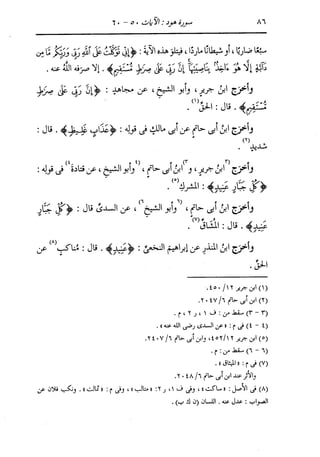 ٨٦ سورة هود : الآيات ٥٠ - ٦٠
سبُعًا ضاريًا ، أو شيطانًا ماردًا ، فيتلو هذه الآيةَ : ﴿إِنِّي تَوَكَّلْتُ عَلَى اللَّهِ رَبِّي وَرَبِّكُم مَّا مِن
دَابَّةٍ إِلَّا هُوَ ءَاخِذٌ بِنَاصِيَتِهَا إِنَّ رَبِّي عَلَى صِرَاطٍ مُّسْتَقِيمٍ﴾ . إلا صرَفه اللَّهُ عنه .
وأخرَج ابنُ جريرٍ ، وأبو الشيخِ ، عن مجاهدٍ : ﴿إِنَّ رَبِّي عَلَى صِرَاطٍ
مُّسْتَقِيمٍ﴾ . قال : الحقِّ(١) .
وأخرَج ابنُ أبى حاتمٍ عن أبى مالكٍ فى قولِه : ﴿عَذَابٍ غَلِيظٍ﴾ . قال :
شديدٍ(٢) .
وأخرَج (٣)ابنُ جريرٍ ، و(٣)ابنُ أبى حاتمٍ ، (٤)وأبو الشيخِ ، عن قتادةَ(٤) فى قولِه :
﴿كُلِّ جَبَّارٍ عَنِيدٍ﴾ : المشركِ(٥) .
وأخرَج ابنُ أبى حاتمٍ ، (٦)وأبو الشيخِ(٦) ، عن السدىِّ قال : ﴿كُلِّ جَبَّارٍ
عَنِيدٍ﴾ . قال : المشاقُّ(٧) .
وأخرَج ابنُ المنذرِ عن إبراهيمَ النخعىِّ : ﴿عَنِيدٍ﴾ . قال : مُناكبٍ(٨) عن
الحقِّ .
(١) ابن جرير ١٢/ ٤٥٠.
(٢) ابن أبى حاتم ٦/ ٢٠٤٧.
(٣ - ٣) سقط من : ف ١، ر ٢، م .
(٤ - ٤) فى م : «عن السدى رضى الله عنه» .
(٥) ابن جرير ١٢/ ٤٥٢، وابن أبى حاتم ٦/ ٢٤٠٧.
(٦ - ٦) سقط من : م .
(٧) فى م : «الميثاق» .
والأثر عند ابن أبى حاتم ٦/ ٢٠٤٨.
(٨) فى الأصل : «ساكت» ، وفى ف ١، ر ٢: «متالب» ، وفى م : «تمالت» . ونكب فلان عن
الصواب : عدل عنه . اللسان (ن ك ب) .